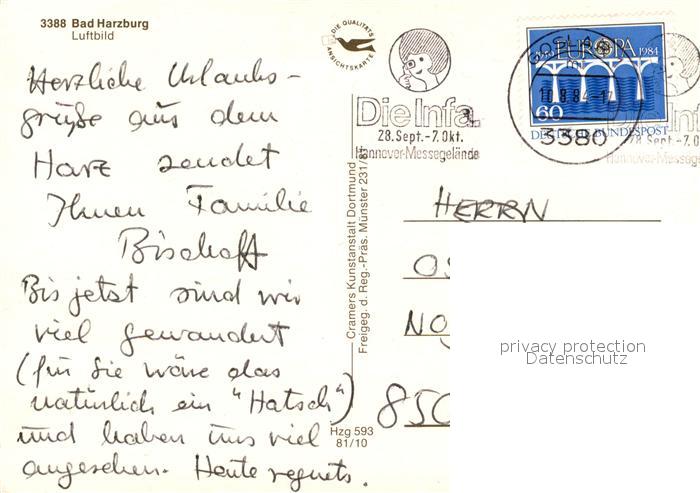 3388 Bad Harzburg
Luftbild
DIE QUALITÄTS
ANSICHTSKARTE
Herzliche Urlaubs-
grüße aus dem
Harz sendet
Ihnen Familie
Bischoff
Bis jetzt sind wir
viel gewandert
(für Sie wäre das
natürlich ein "Hatsch")
und haben uns viel
angesehen. Heute regnets.
Cramers Kunstanstalt Dortmund
Freigeg. d. Reg.-Präs. Münster 231/8
Hzg 593
81/10
Die Infa
28. Sept.-7. Okt.
Hannover-Messegelände
EUROPA 1984
60
DEUTSCHE BUNDESPOST
GOSLAR
10.8.84-17
3380
28. Sept.-7.O
Hannover-Messege
HERRN
OS
NO
850
privacy protection
Datenschutz